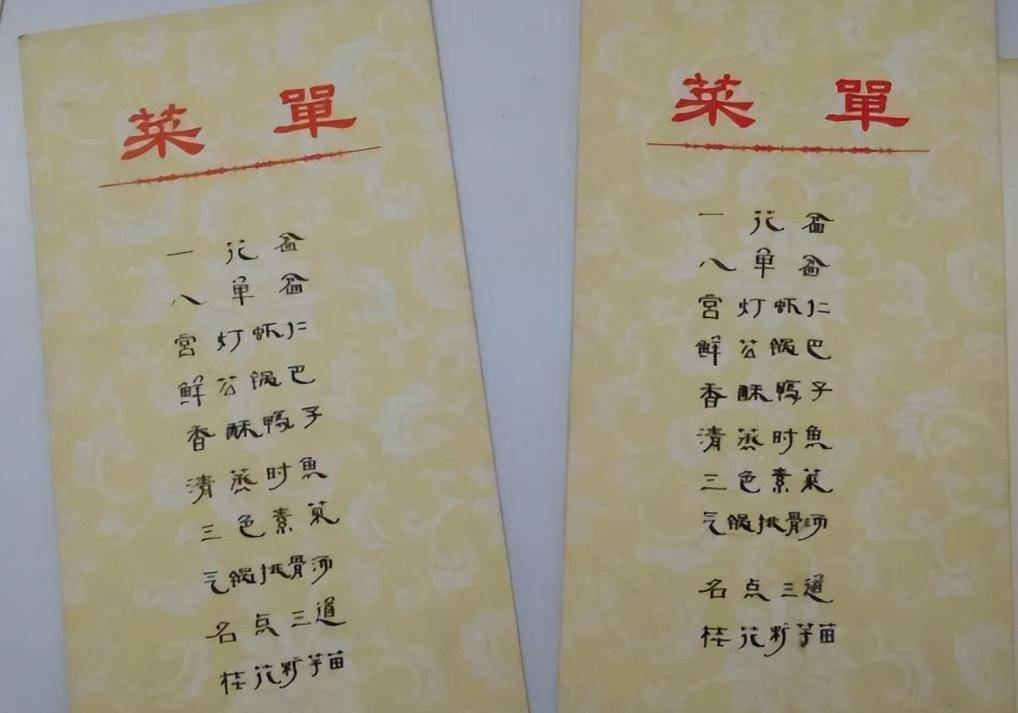 菜單
一花盆
八单盆
宫灯虾仁
鲜锅巴
香酥鸭子
清蒸时魚
三色素菜
气锅排骨汤
名点三道
桂花芋苗
菜單
一花盆
八单盆
宫灯虾仁
鲜锅巴
香酥鸭子
清蒸时魚
三色素菜
气锅排骨汤
名点三道
桂花芋苗